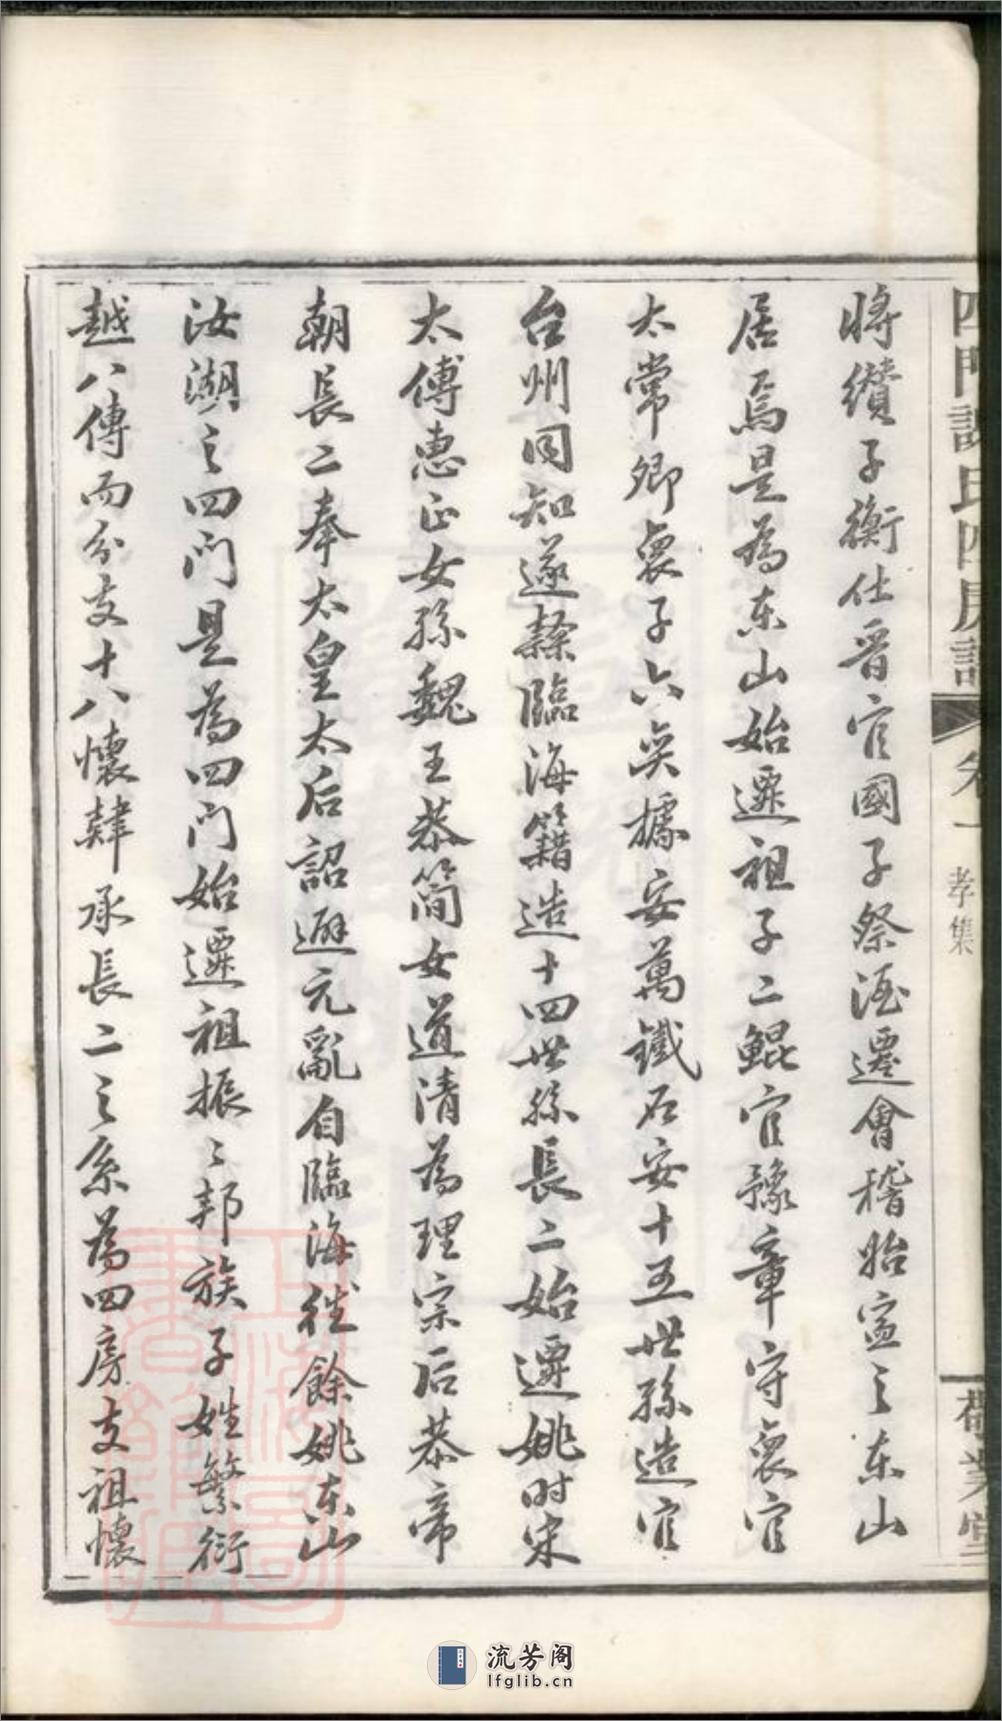 將纘子衡仕晉官國子祭酒遷會稽始寍之東山
居焉是為東山始遷祖子二鯤官豫章守裒官
太常卿裒子六奕據安萬鐵石安十五世孫造官
台州同知遂隸臨海籍造十四世孫長二始遷姚时宋
太傅惠正女孫魏王恭簡女道清為理宗后恭帝
朝長二奉太皇太后詔避元亂自臨海徙餘姚東山
汝湖之四门是為四门始遷祖振〻邦族子姓繁衍
越八傳而分支十八懷肄承長二之系為四房支祖懷
四門謝氏四房譜
卷一
孝集
敬業堂
流芳阁
lfglib.cn